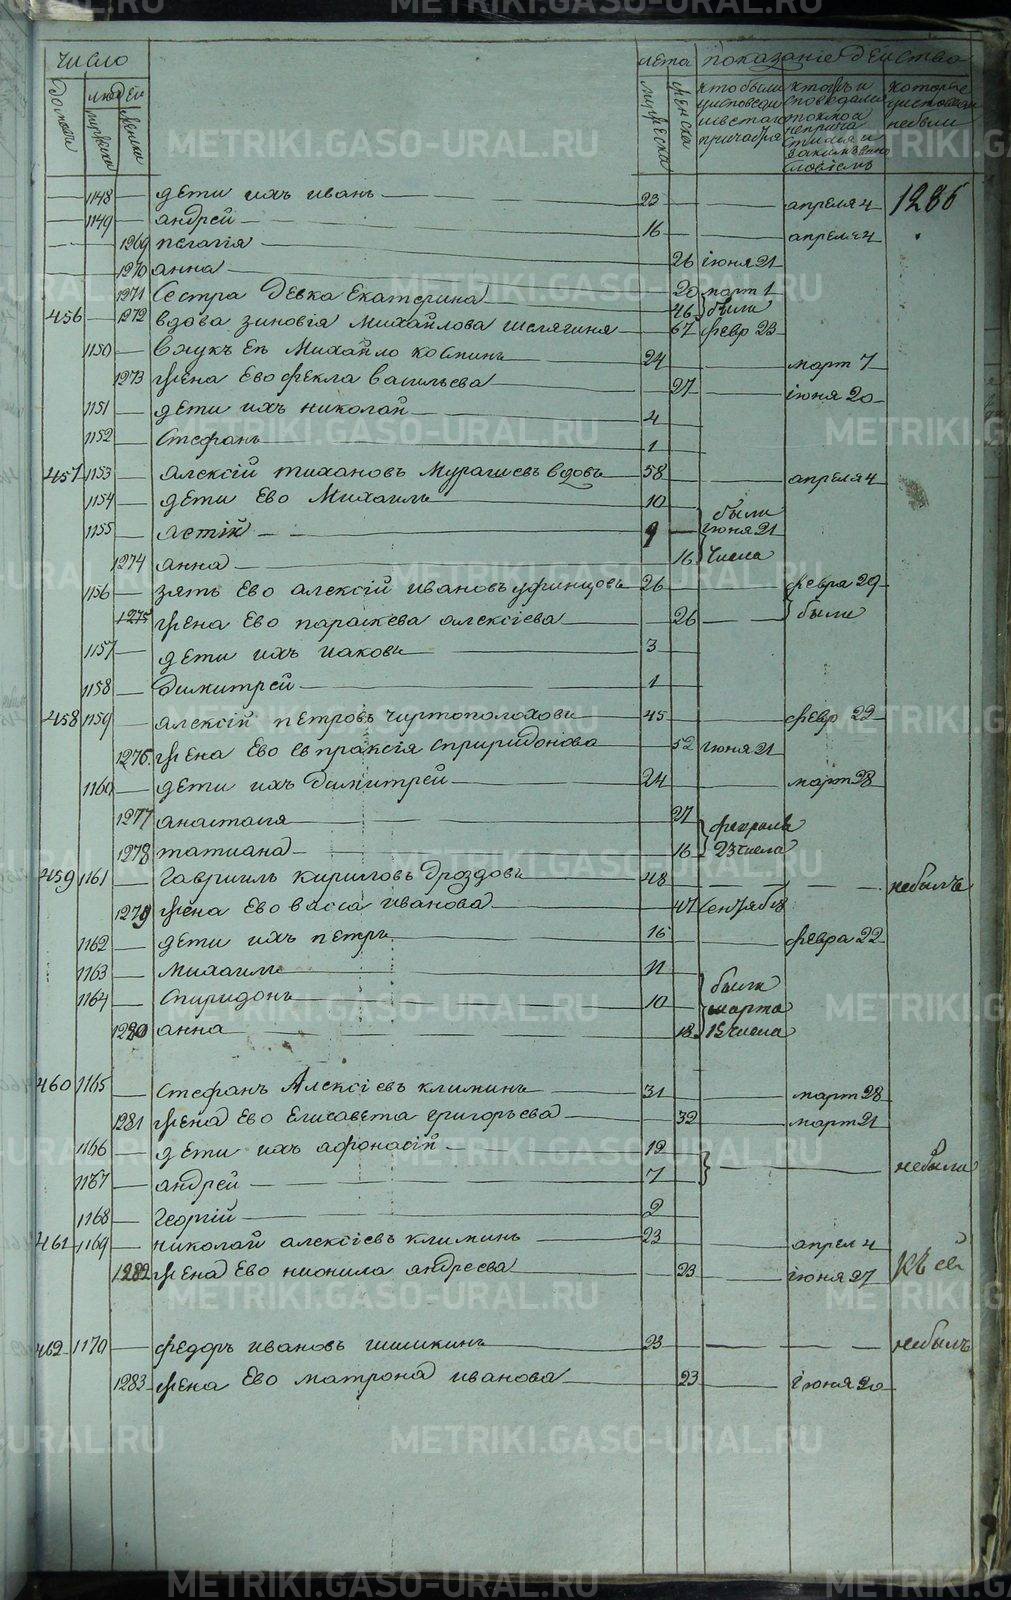 число лета показаніе действо
домовъ людей мужска женска мужеска женска
кто были у исповеди и св: таго причастія
которыя исповедались токмо а не причастились и за какимъ винословіемъ
которые у исповеди небыли
1148 дети ихъ иванъ 23 апреля 4 1286
1149 андрей 16 апреля 4
1269 пелагія
1270 анна 26 іюня 21
1271 Сестра Девка Екатерина 20 март 1
456 1272 вдова зиновія михайлова шелягина 46 67 были февр 23
1150 внукъ Ея Михайло 24 март 7
1273 жена Ево фекла васильева 27 іюня 20
1151 дети ихъ николай 4
1152 Стефанъ 1
457 1153 алексій тихановъ Мурашевъ вдовъ 58 апреля 4
1154 дети Ево Михаилъ 10 были
1155 9 іюня 21
1274 анна 16 числа
1156 зять Ево алексій ивановъ уфинцовъ 26 февра 29
1275 жена Ево параскева алексіева 26 были
1157 дети ихъ иаковъ 3
1158 Димитрей 1
458 1159 алексій петровъ чиртополоховъ 45 февр 22
1276 жена Ево евпраксія спиридонова 52 іюня 21
1160 дети ихъ Димитрей 24 март 28
1277 анастасія 21 февраля
1278 татиана 16 23 числа
459 1161 Гавриилъ кириловъ Дроздовъ 48 небылъ
1279 жена Ево васса иванова 47
1162 дети ихъ петръ 16 февра 22
1163 михаилъ 11 были
1164 Спиридонъ 10 марта
1280 анна 18 15 числа
460 1165 Стефанъ Алексіевъ климинъ 31 март 28
1281 жена Ево Елисавета григорьева 32 март 21
1166 дети ихъ афонасій 12 небыли
1167 андрей 7
1168 Георгій 2
461 1169 николай алексіевъ климинъ 23 апрел 4
1282 жена Ево нионила андреева 23 іюня 27
462 1170 федоръ ивановъ шишкинъ 23 небылъ
1283 жена Ево матрона иванова 23 іюня 20
METRIKI.GASO-URAL.RU